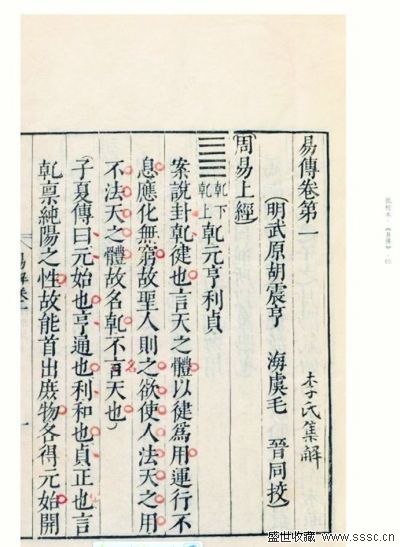 易傳卷第一
李氏集解
(明武原胡震亨 海虞毛 晉同挍)
(周易上經)
乾下 乾上 乾元亨利貞
案說卦乾徤也言天之體以徤為用運行不
息應化無窮故聖人則之欲使人法天之用
不法天之體故名乾不言天也)
(子夏傳曰元始也亨通也利和也貞正也言
乾稟純陽之性故能首出庶物各得元始開
易解卷一
一
盛世收藏 www.sssc.cn